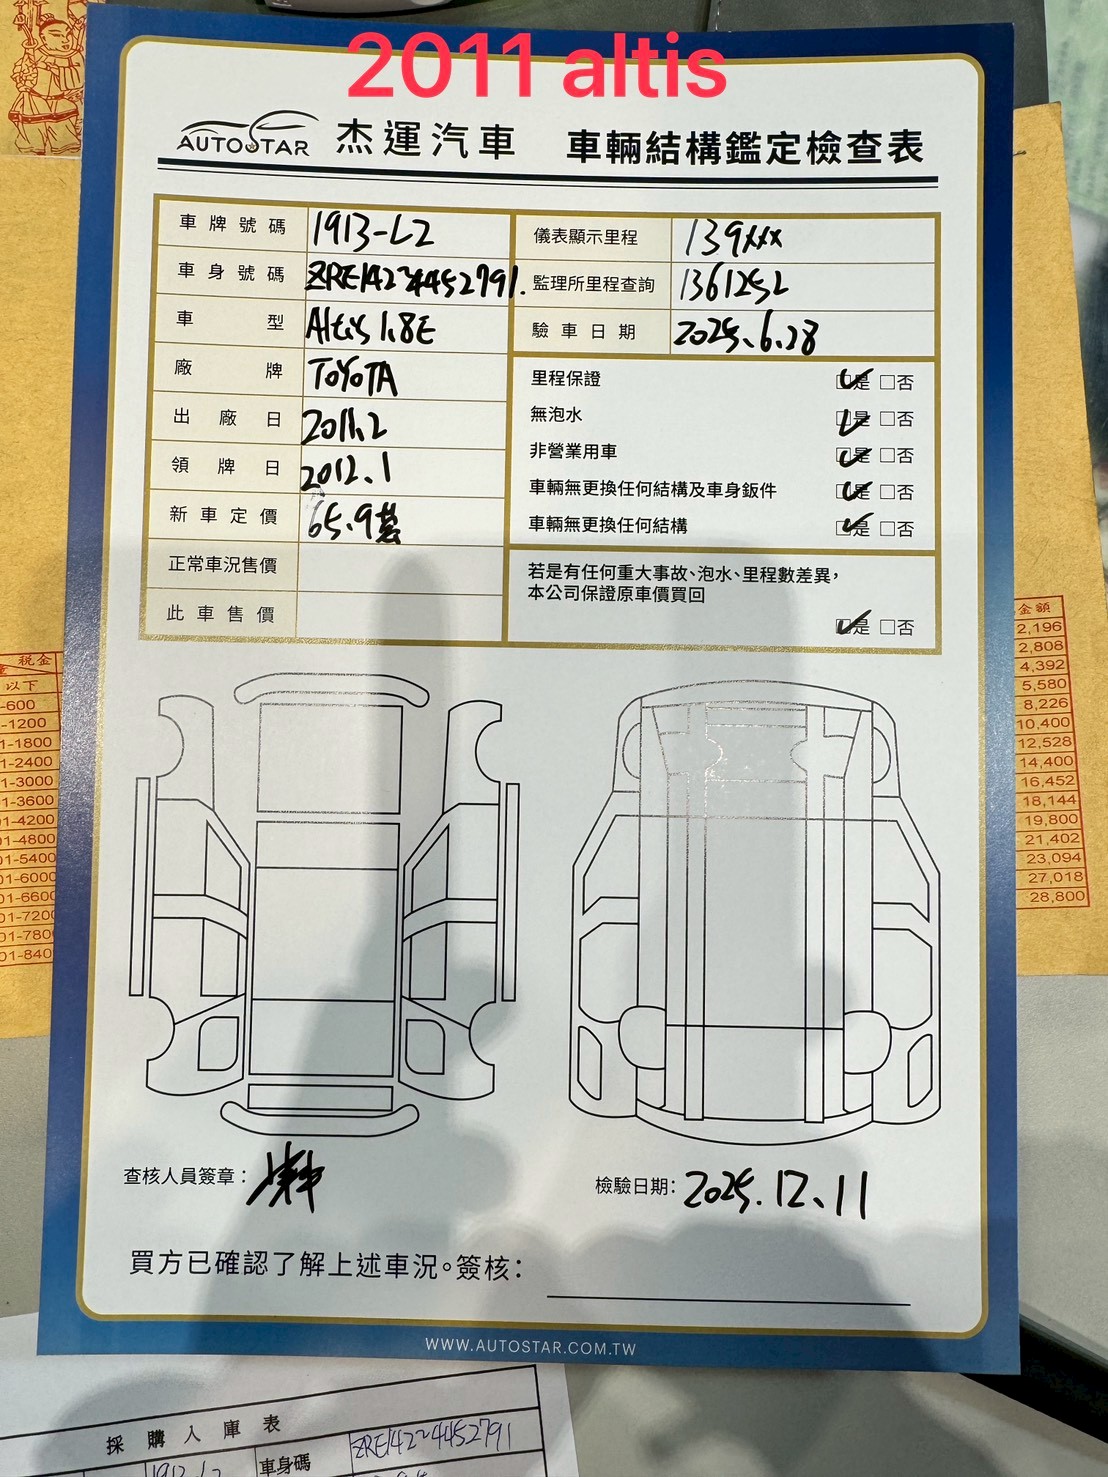 2011 altis
AUTOSTAR 杰運汽車 車輛結構鑑定檢查表
車牌號碼 1913-L2
車身號碼 ZRE142-4452791.
車型 Altis 1.8E
廠牌 TOYOTA
出廠日 2011.2
領牌日 2012.1
新車定價 65.9萬
正常車況售價
此車售價
儀表顯示里程 139xxx
監理所里程查詢 136125L
驗車日期 2025.6.28
里程保證 是 □否
無泡水 是 □否
非營業用車 是 □否
車輛無更換任何結構及車身鈑件 是 □否
車輛無更換任何結構 是 □否
若是有任何重大事故、泡水、里程數差異，
本公司保證原車價買回
是 □否
查核人員簽章：
檢驗日期： 2025.12.11
買方已確認了解上述車況。簽核：
WWW.AUTOSTAR.COM.TW
採購入庫表
1913-L2 車身碼 ZRE142-4452791
稅金
以下
-600
-1200
1-1800
1-2400
1-3000
1-3600
01-4200
01-4800
01-5400
01-6000
01-6600
01-7200
01-780
01-840
金額
2,196
2,808
4,392
5,580
8,226
10,400
12,528
14,400
16,452
18,144
19,800
21,402
23,094
27,018
28,800